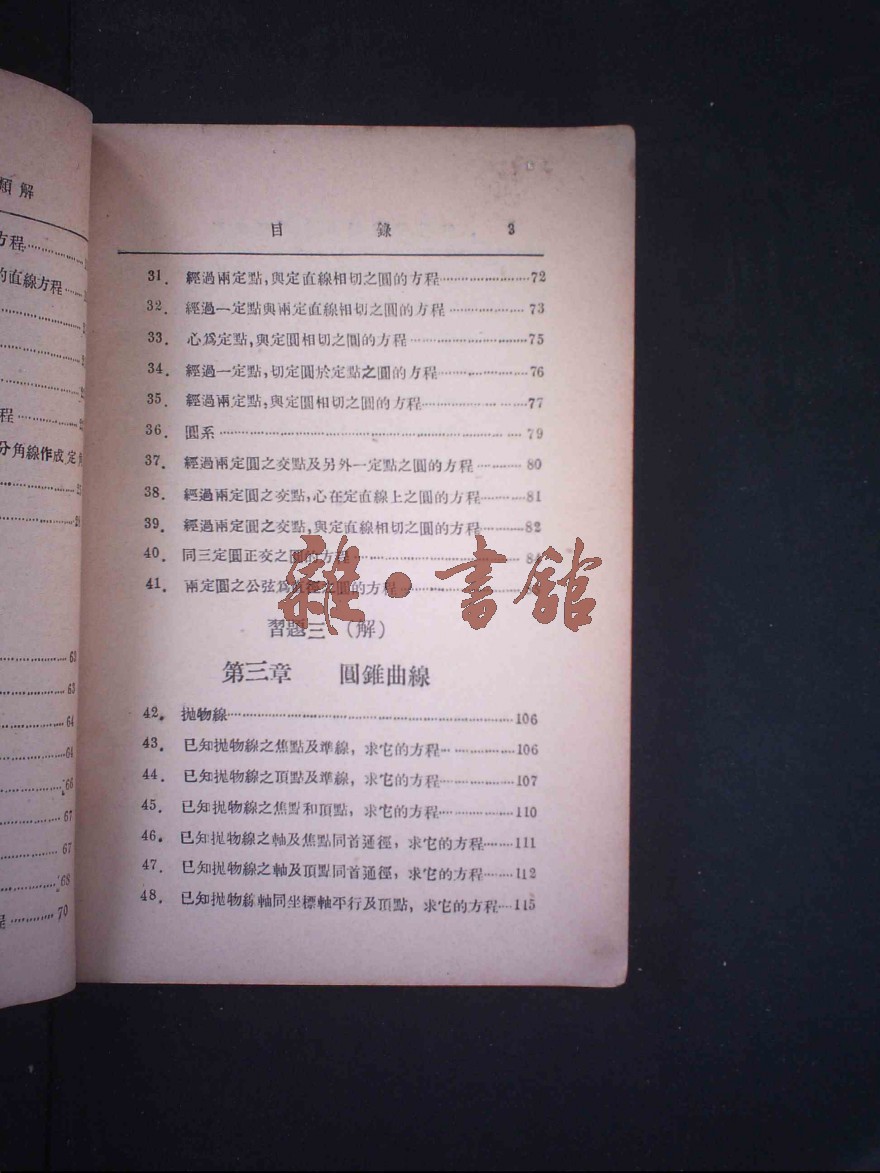 類解
方程
的直線方程
程
分角線作成定
63
63
64
64
66
67
67
68
程 70
目 錄 3
31. 經過兩定點,與定直線相切之圓的方程 72
32. 經過一定點與兩定直線相切之圓的方程 73
33. 心爲定點,與定圓相切之圓的方程 75
34. 經過一定點,切定圓於定點之圓的方程 76
35. 經過兩定點,與定圓相切之圓的方程 77
36. 圓系 79
37. 經過兩定圓之交點及另外一定點之圓的方程 80
38. 經過兩定圓之交點,心在定直線上之圓的方程 81
39. 經過兩定圓之交點,與定直線相切之圓的方程 82
40. 同三定圓正交之圓的方程 84
41. 兩定圓之公弦爲直徑之圓的方程
雜·書館
習題三(解)
第三章 圓錐曲線
42. 拋物線 106
43. 已知拋物線之焦點及準線,求它的方程 106
44. 已知拋物線之頂點及準線,求它的方程 107
45. 已知拋物線之焦點和頂點,求它的方程 110
46. 已知拋物線之軸及焦點同首通徑,求它的方程 111
47. 已知拋物線之軸及頂點同首通徑,求它的方程 112
48. 已知拋物線軸同坐標軸平行及頂點,求它的方程 115